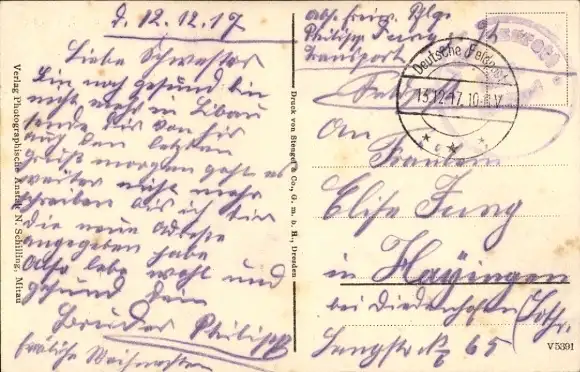 d. 12.12.17
Liebe Schwester
Bin noch gesund bin
nicht mehr in Libau
sende dir von hir
auch den letzten
Gruß morgen geht es
weiter nicht mehr
schreiben bis ich dir
die neue Adresse
angegeben habe
Also lebe wohl und
gesund dein
Bruder Philipp
fröliche Weihnachten
Verlag Photographische Anstalt N. Schilling, Mitau
Druck von Stengel & Co., G. m. b. H., Dresden
Abs. freiw. Pflg.
Philipp Jung
Transport
Deutsche Feldpost
13.12.17. 10-11V
An
Fräulein
Elise Jung
in Hayingen
bei Diedenhofen (Lothr.
Langstr. 65
V5391